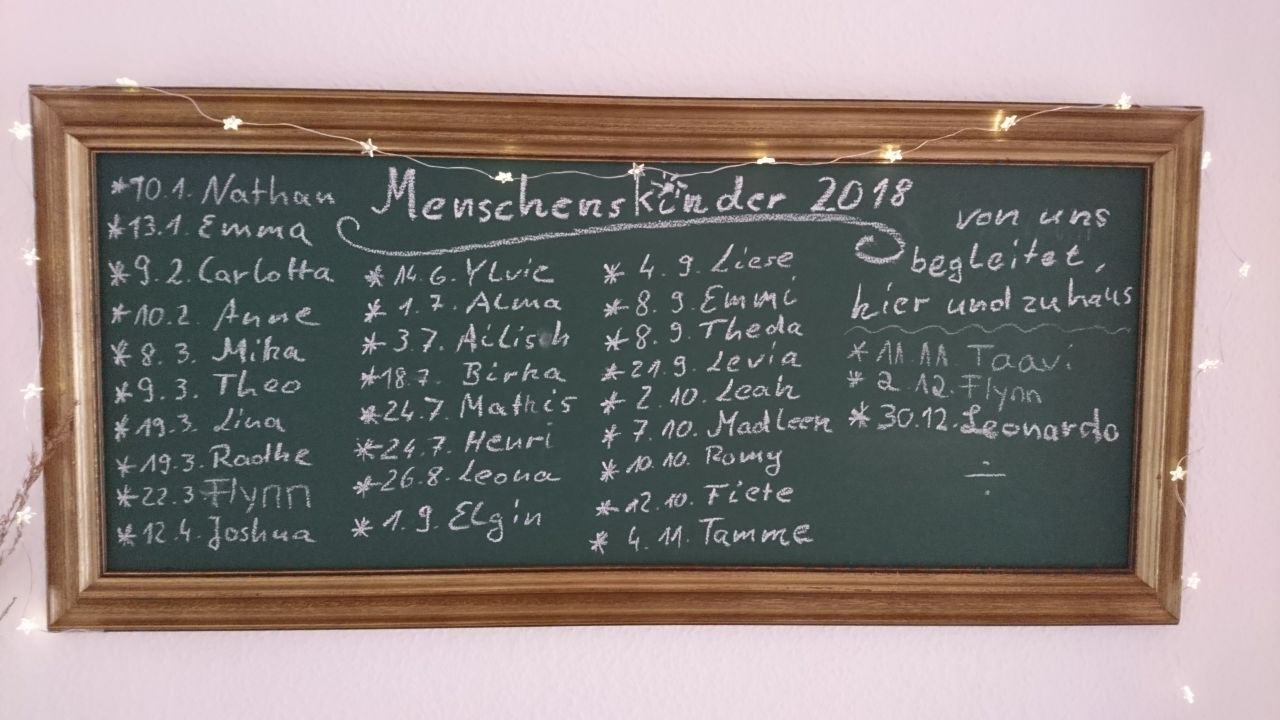 Menschenskinder 2018
von uns
begleitet,
hier und zuhaus
*10.1. Nathan
*13.1. Emma
*9.2. Carlotta
*10.2. Anne
*8.3. Mika
*9.3. Theo
*19.3. Lina
*19.3. Radhe
*22.3 Flynn
*12.4. Joshua
*14.6. Ylvie
*1.7. Alma
*3.7. Ailisch
*18.7. Birka
*24.7. Mathis
*24.7. Henri
*26.8. Leona
*1.9. Elgin
*4.9. Liese
*8.9. Emmi
*8.9. Theda
*21.9. Levia
*2.10. Leah
*7.10. Madleen
*10.10. Romy
*12.10. Fiete
*4.11. Tamme
*11.11. Taavi
*2.12. Flynn
*30.12. Leonardo
÷